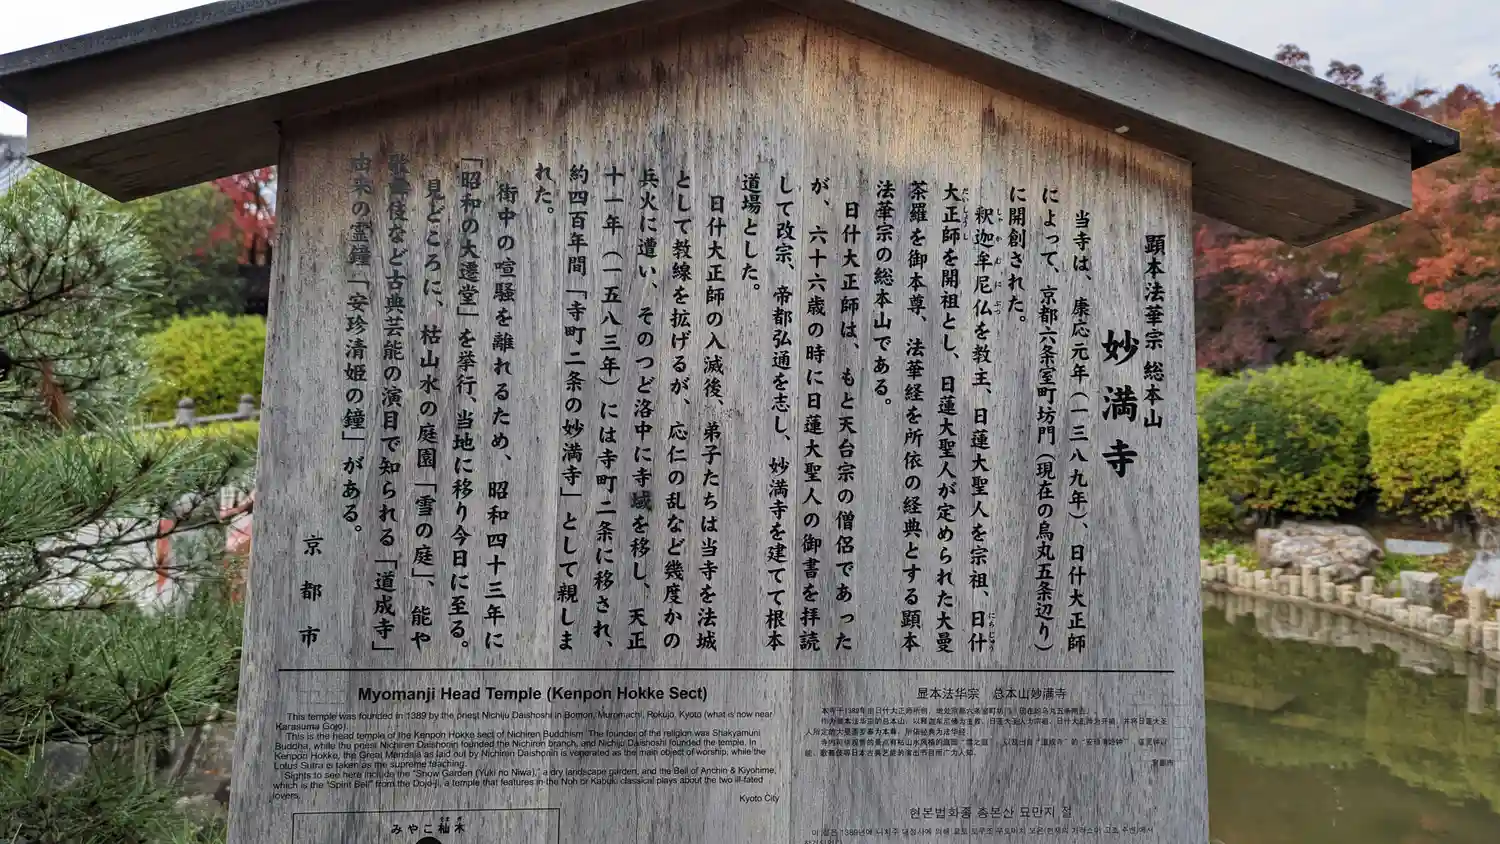 顕本法華宗 総本山
妙満寺
当寺は、康応元年（一三八九年）、日什大正師
によって、京都六条室町坊門（現在の烏丸五条辺り）
に開創された。
釈迦牟尼仏を教主、日蓮大聖人を宗祖、日什
大正師を開祖とし、日蓮大聖人が定められた大曼
荼羅を御本尊、法華経を所依の経典とする顕本
法華宗の総本山である。
日什大正師は、もと天台宗の僧侶であった
が、六十六歳の時に日蓮大聖人の御書を拝読
して改宗、帝都弘通を志し、妙満寺を建てて根本
道場とした。
日什大正師の入滅後、弟子たちは当寺を法城
として教線を拡げるが、応仁の乱など幾度かの
兵火に遭い、そのつど洛中に寺域を移し、天正
十一年（一五八三年）には寺町二条に移され、
約四百年間「寺町二条の妙満寺」として親しま
れた。
街中の喧騒を離れるため、昭和四十三年に
「昭和の大遷堂」を挙行、当地に移り今日に至る。
見どころに、枯山水の庭園「雪の庭」、能や
歌舞伎など古典芸能の演目で知られる「道成寺」
由来の霊鐘「安珍清姫の鐘」がある。
京都市
Myomanji Head Temple (Kenpon Hokke Sect)
This temple was founded in 1389 by the priest Nichiju Daishoshi in Bomon, Muromachi, Rokujo, Kyoto (what is now near
Karasuma Gojo).
This is the head temple of the Kenpon Hokke sect of Nichiren Buddhism. The founder of the religion was Shakyamuni
Buddha, while the priest Nichiren Daishonin founded the Nichiren branch, and Nichiju Daishoshi founded the temple. In
Kenpon Hokke, the Great Mandala as laid out by Nichiren Daishonin is venerated as the main object of worship, while the
Lotus Sutra is taken as the supreme teaching.
Sights to see here include the "Snow Garden (Yuki no Niwa)," a dry landscape garden, and the Bell of Anchin & Kiyohime,
which is the "Spirit Bell" from the Dojo-ji, a temple that features in the Noh or Kabuki classical plays about the two ill-fated
lovers.
Kyoto City
みやこ杣木
显本法华宗　总本山妙满寺
현본법화종 총본산 묘만지 절